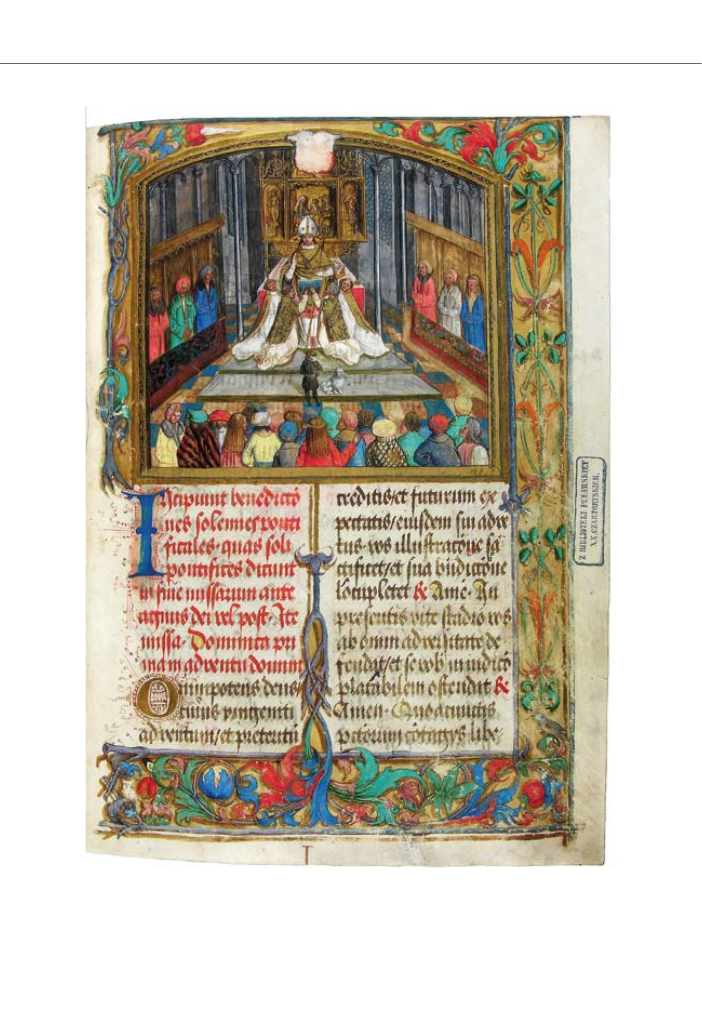 Incipiunt benedictõ
nes solennes ponti
ficales. quas soli
pontifices dicunt
in fine missarum ante
agnus dei vel post. Ite
missa. Dominica pri
ma in adventu domini
Omnipotens deus
cuius unigeniti
adventum/et preteritũ
creditis/et futurum ex
pectatis/eiusdem sui adve
tus. vos illustracõne sã
ctificet/et sua bñdictõne
locupletet & Ame. In
presentis vite stadio vos
ab omni adversitate de
fendat/et se vob in iudicio
placabilem ostendat &
Amen. Quo a cunctis
pctõrum cõtagijs libe-
Z BIBLIOTEKI PUŁAWSKIEY
X.X. CZARTORYSKICH.